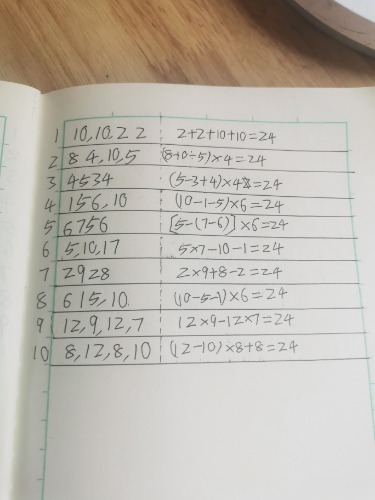 1 10,10,2 2 2+2+10+10=24
2 8 4,10,5 (8+10÷5)×4=24
3 4534 (5-3+4)×4=24
4 156,10 (10-1-5)×6=24
5 6756 [5-(7-6)]×6=24
6 5,10,17 5×7-10-1=24
7 2928 2×9+8-2=24
8 615,10 (10-5-1)×6=24
9 12,9,12,7 12×9-12×7=24
10 8,12,8,10 (12-10)×8+8=24